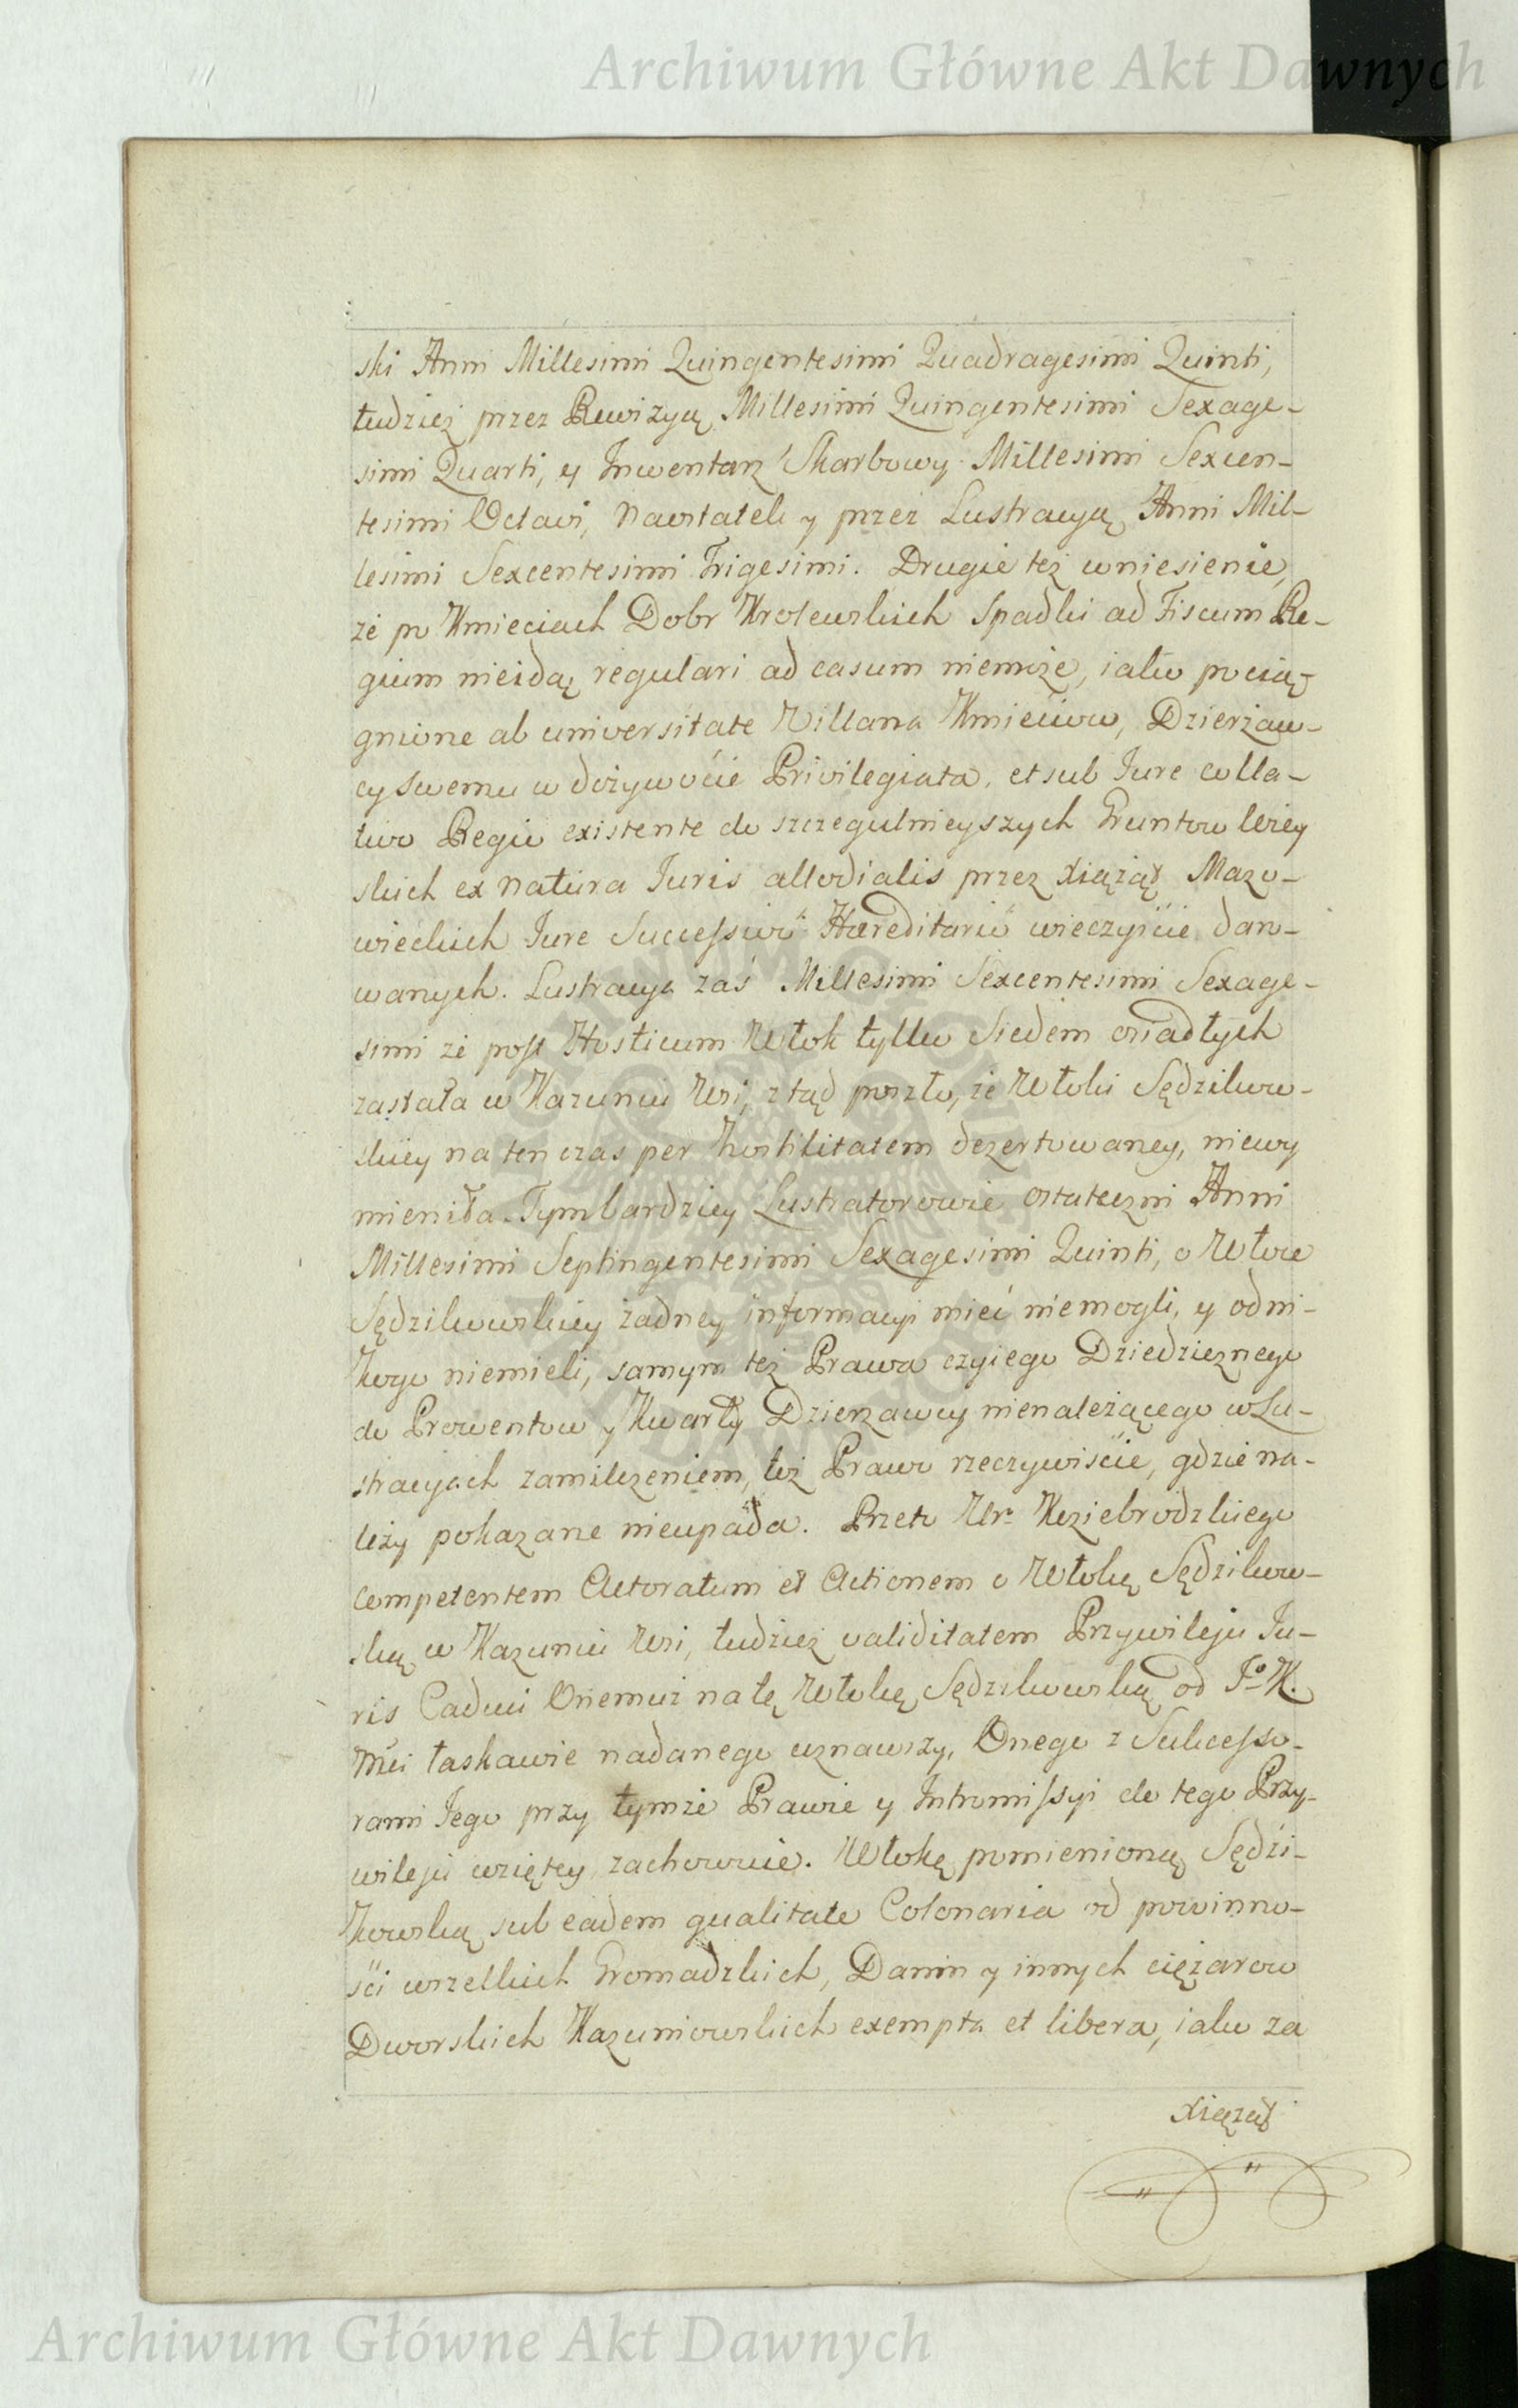 Archiwum Główne Akt Dawnych
ski Anni Millesimi Quingentesimi Quadragesimi Quinti,
tudziez przez Rewizyą Millesimi Quingentesimi Sexage-
simi Quarti, y Inwentarz Skarbowy Millesimi Sexcen-
tesimi Octavi, nawstatek y przez Lustracyą Anni Mil-
lesimi Sexcentesimi Trigesimi. Drugie też wniesienie,
że po Kmieciach Dobr Krolewskich Spadki ad Fiscum Re-
gium nieidą regulari ad casum niemoże, iako pocią-
gnione ab universitate Villana Kmieciow, Dzierżaw-
cy swemu w dożywocie Privilegiata, et sub Jure colla-
tivo Regio existente do szczegulnieyszych Gruntow Wiey
skich ex natura Juris allodialis przez Xiążąt Mazo-
wieckich Jure Successivo Hæreditario wieczyście daro-
wanych. Lustracya zaś Millesimi Sexcentesimi Sexage-
simi że post Hosticum Włok tylko Siedem osiadłych
zastała w Kazuniu Wsi, ztąd poszło, że Włoki Sędzikow-
skiey na ten czas per hostilitatem dezertowaney, niewy
mieniła. Tymbardziey Lustratorowie ostateczni Anni
Millesimi Septingentesimi Sexagesimi Quinti, o Włoce
Sędzikowskiey żadney informacyi mieć niemogli, y odni-
kogo niemieli, samym też Prawa czyiego Dziedzicznego
do Prowentow y Kwarty Dzierzawcy nienależącego w Lu-
stracyach zamilczeniem, też Prawo rzeczywiście, gdzie na-
leży pokazane nieupada. Przeto Ur. Koziebrodzkiego
competentem Actoratum et Actionem o Włokę Sędzikow-
ską w Kazuniu Wsi, tudzież validitatem Przywileju Ju-
ris Caduci Onemuż na tę Włokę Sędzikowską od Jo K.
Mci łaskawie nadanego uznawszy, Onego z Sukcesso-
rami Jego przy tymże Prawie y Intromissyi do tego Przy-
wileju wziętey zachowuie. Włokę pomienioną Sędzi-
kowską sub eadem qualitate Colonaria od powinno-
ści wszelkich Gromadzkich, Danin y innych ciężarow
Dworskich Kazuniowskich exempta et libera, iako za
Xiążąt
Archiwum Główne Akt Dawnych